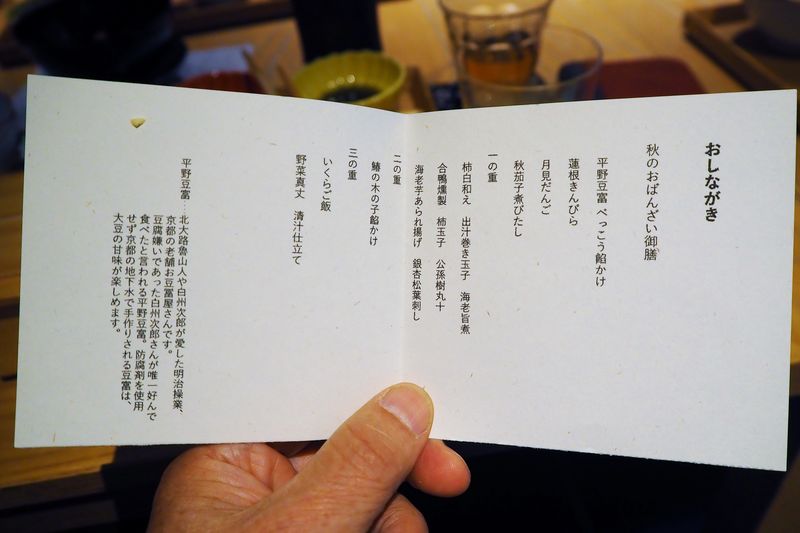 おしながき
秋のおばんざい御膳
平野豆富 べっこう餡かけ
蓮根きんぴら
月見だんご
秋茄子煮びたし
一の重
柿白和え 出汁巻き玉子 海老旨煮
合鴨燻製 柿玉子 公孫樹丸十
海老芋あられ揚げ 銀杏松葉刺し
二の重
鰆の木の子餡かけ
三の重
いくらご飯
野菜真丈 清汁仕立て
平野豆富：北大路魯山人や白州次郎が愛した明治操業、
京都の老舗お豆富屋さんです。
豆腐嫌いであった白州次郎さんが唯一好んで
食べたと言われる平野豆富。防腐剤を使用
せず京都の地下水で手作りされる豆富は、
大豆の甘味が楽しめます。